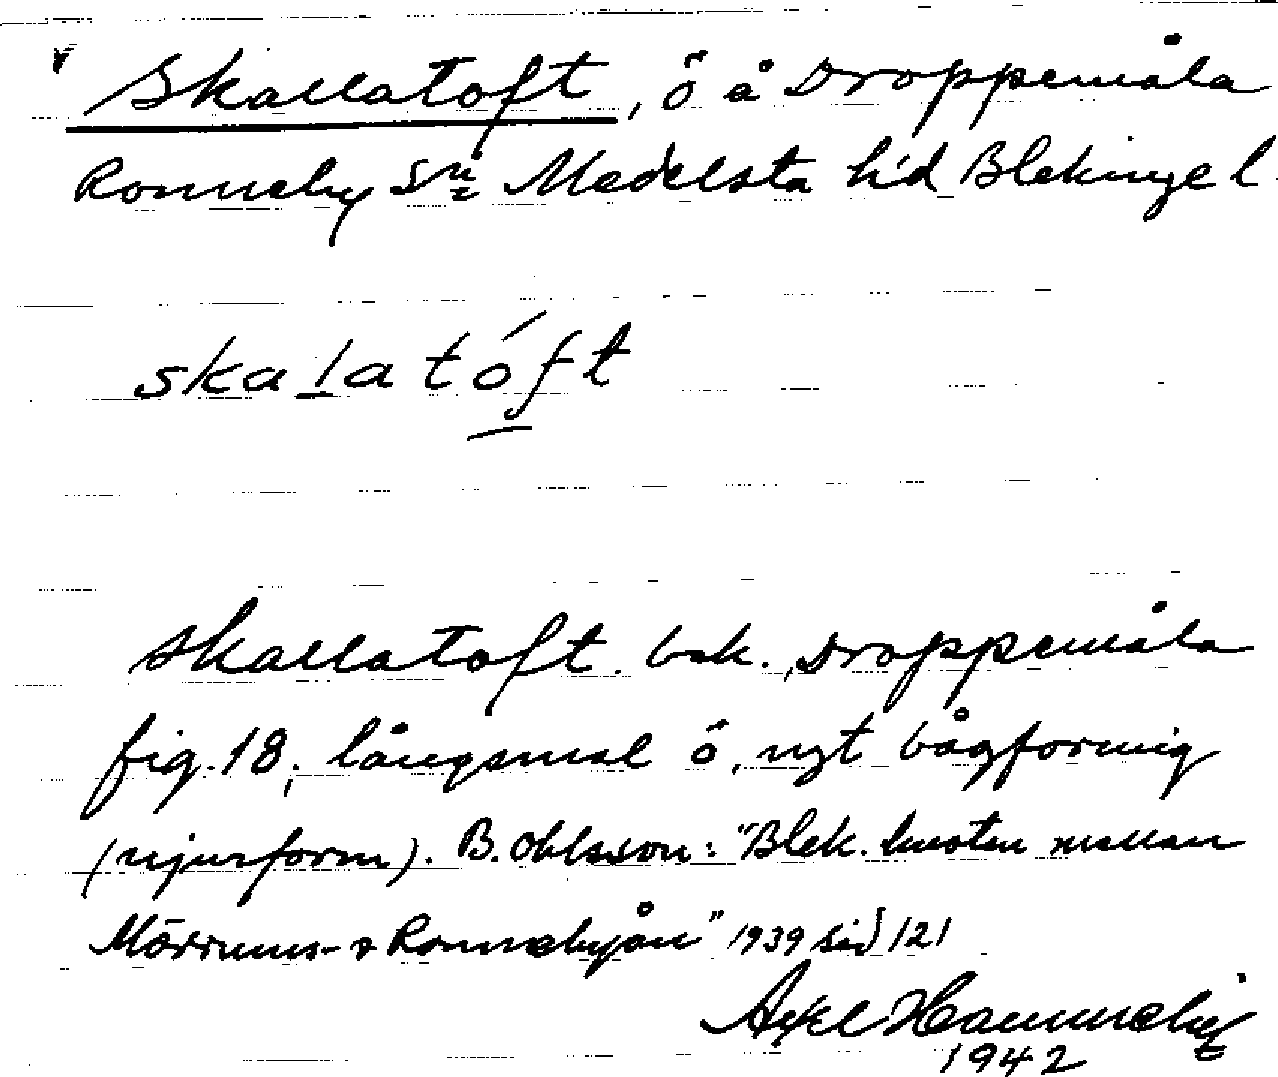 Skallatoft, ö å Droppemåla
Ronneby Sn Medelsta hd Blekinge l.
skalatóft
Skallatoft. bok. Droppemåla
fig. 18; långsmal ö, ngt bågformig
(njurform). B. Ohlsson: "Blek. kusten mellan
Mörrums- o Ronnebyån" 1939 sid 121
Axel Hammneby
1942